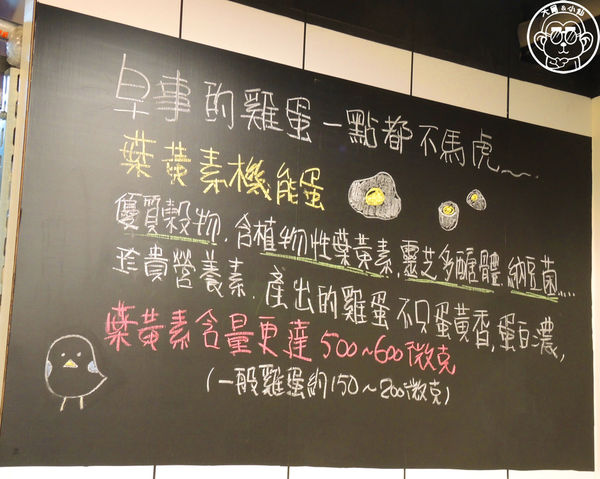 大胃&小肚
早事的雞蛋一點都不馬虎
葉黃素機能蛋
優質穀物,含植物性葉黃素,靈芝多醣體,納豆菌....
珍貴營養素,產出的雞蛋不只蛋黃香,蛋白濃,
葉黃素含量更達500~600微克
(一般雞蛋約150~200微克)